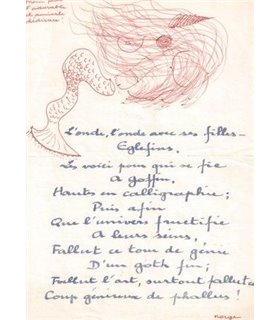 pour
l'adorable
et amicale
dédicace
L'onde, l'onde avec ses filles-
Eglefins,
Les voici pour qui se fie
A goffin,
Hauts en calligraphie ;
Puis afin
Que l'univers fructifie
A leurs seins,
Fallut ce tour de génie
D'un goth fin ;
Fallut l'art, surtout fallut ce
Coup généreux de phallus !
norge